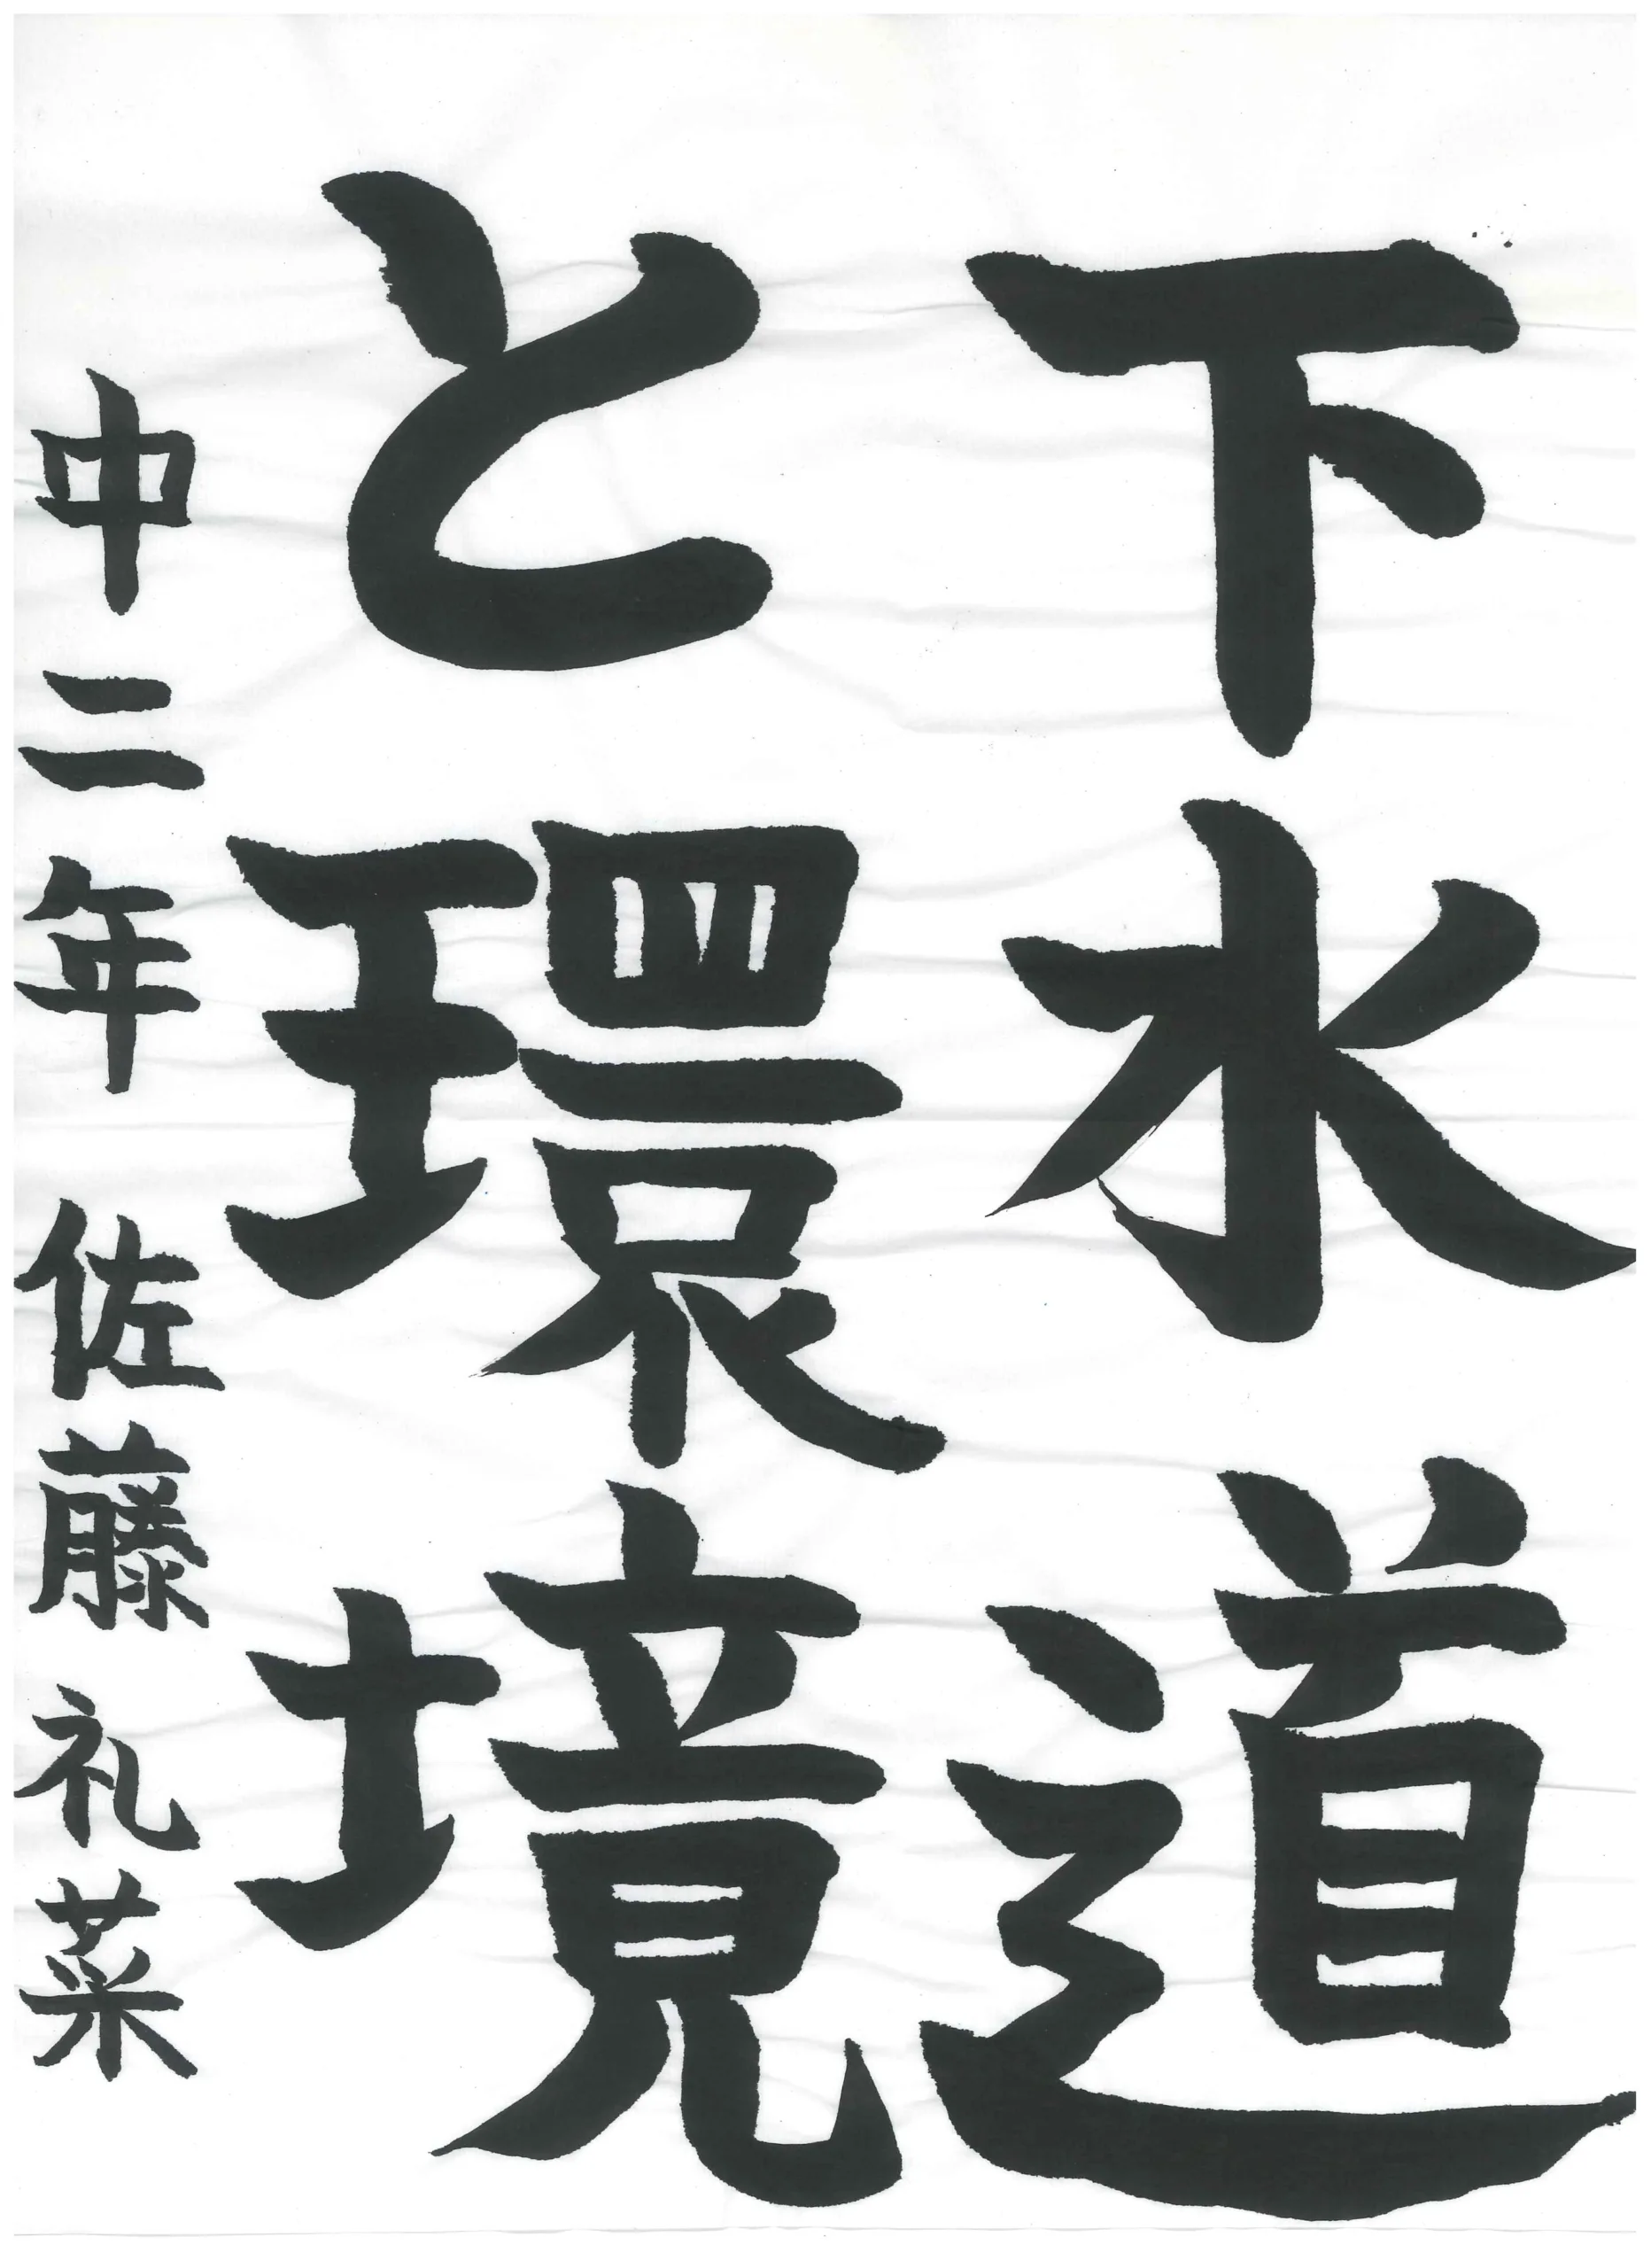 下水道
と環境
中二年 佐藤礼菜